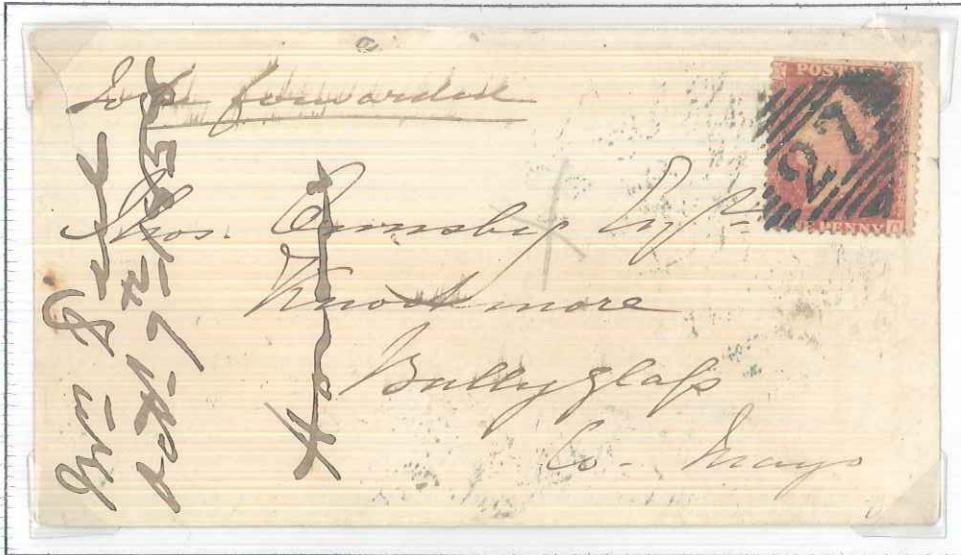 To be forwarded
Thos. Ormsby Esqre
Knockmore
Ballyglass
Co. Mayo
27
POST
E PENNY
Wm